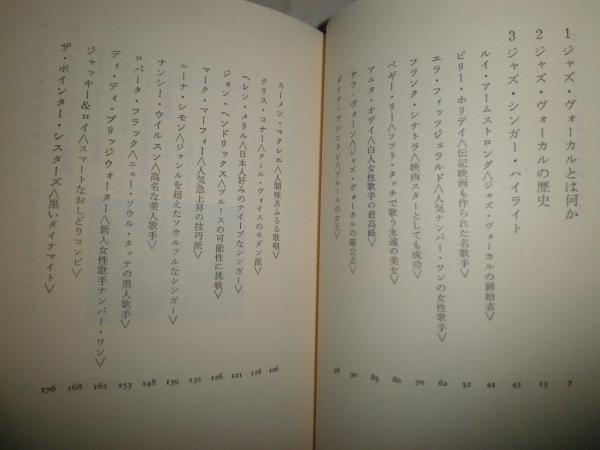 1 ジャズ・ヴォーカルとは何か 7
2 ジャズ・ヴォーカルの歴史 13
3 ジャズ・シンガー・ハイライト 43
ルイ・アームストロング〈ジャズ・ヴォーカルの創始者〉 44
ビリー・ホリデイ〈伝記映画も作られた名歌手〉 52
エラ・フィッツジェラルド〈人気ナンバー・ワンの女性歌手〉 62
フランク・シナトラ〈映画スターとしても成功〉 70
ペギー・リー〈ソフト・タッチで歌う永遠の美女〉 80
アニタ・オデイ〈白人女性歌手の最高峰〉 85
サラ・ヴォーン〈ジャズ・ヴォーカルの確立者〉 90
ダイナ・ワシントン〈ブルースの女王〉 98
カーメン・マクレエ〈人間味あふるる歌唱〉 106
クリス・コナー〈クール・ヴォイスのモダン派〉 116
ヘレン・メリル〈日本人好みのナイーブなシンガー〉 121
ジョン・ヘンドリックス〈ブルースの可能性に挑戦〉 126
マーク・マーフィー〈人気急上昇の技巧派〉 132
ニーナ・シモン〈ジャンルを超えたソウルフルなシンガー〉 139
ナンシー・ウイルスン〈高名な美人歌手〉 148
ロバータ・フラック〈ニュー・ソウル・タッチの黒人歌手〉 153
ディ・ディ・ブリッジウォーター〈新人女性歌手ナンバー・ワン〉 162
ジャッキー&ロイ〈スマートなおしどりコンビ〉 168
ザ・ポインター・シスターズ〈黒いダイナマイト〉 176